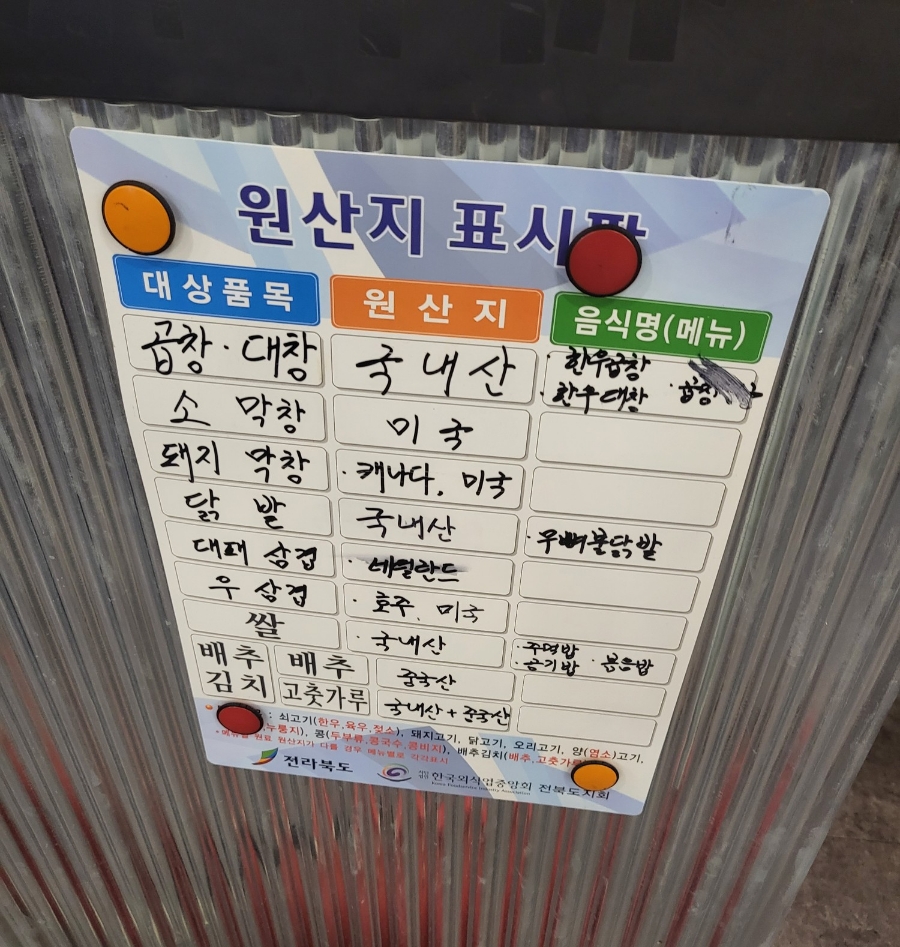 원산지 표시판
대상품목 원산지 음식명(메뉴)
곱창·대창 국내산 · 한우곱창
· 한우대창 · 곱창
소 막창 미국
돼지 막창 · 캐나다, 미국
닭 발 국내산 · 무뼈불닭발
대패 삼겹 · 네덜란드
우 삼겹 · 호주, 미국
쌀 · 국내산 · 주먹밥
· 공기밥 · 볶음밥
배추김치 배추 중국산
고춧가루 국내산 + 중국산
: 쇠고기(한우,육우,젖소), 돼지고기, 닭고기, 오리고기, 양(염소)고기,
누룽지), 콩(두부류,콩국수,콩비지), 배추김치(배추,고춧가루
원료 원산지가 다를 경우 메뉴별로 각각표시
전라북도
사단법인 한국외식업중앙회 전북도지회